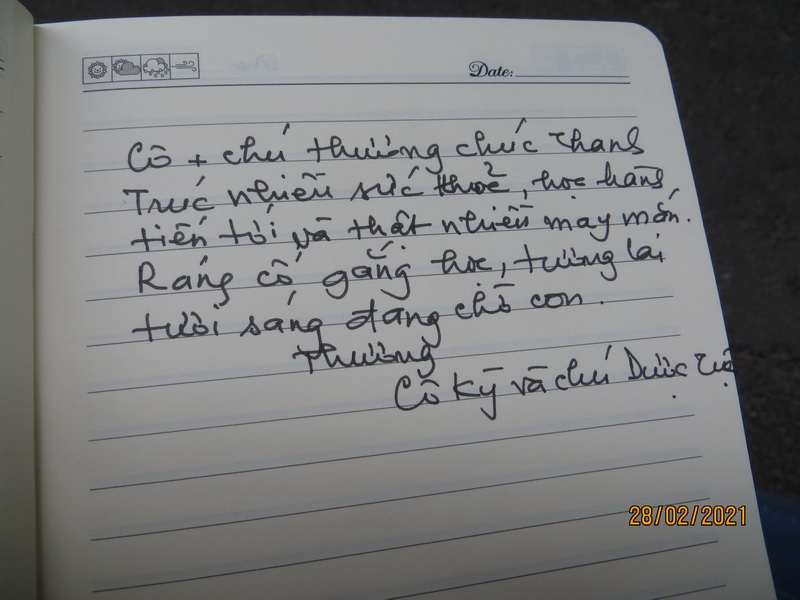 Date:
Cô + chú thương chúc Thanh
Trúc nhiều sức khoẻ, học hành
tiến tới và thật nhiều may mắn.
Ráng cố gắng học, tương lai
tươi sáng đang chờ con.
Thương
Cô Kỹ và chú Dược
28/02/2021